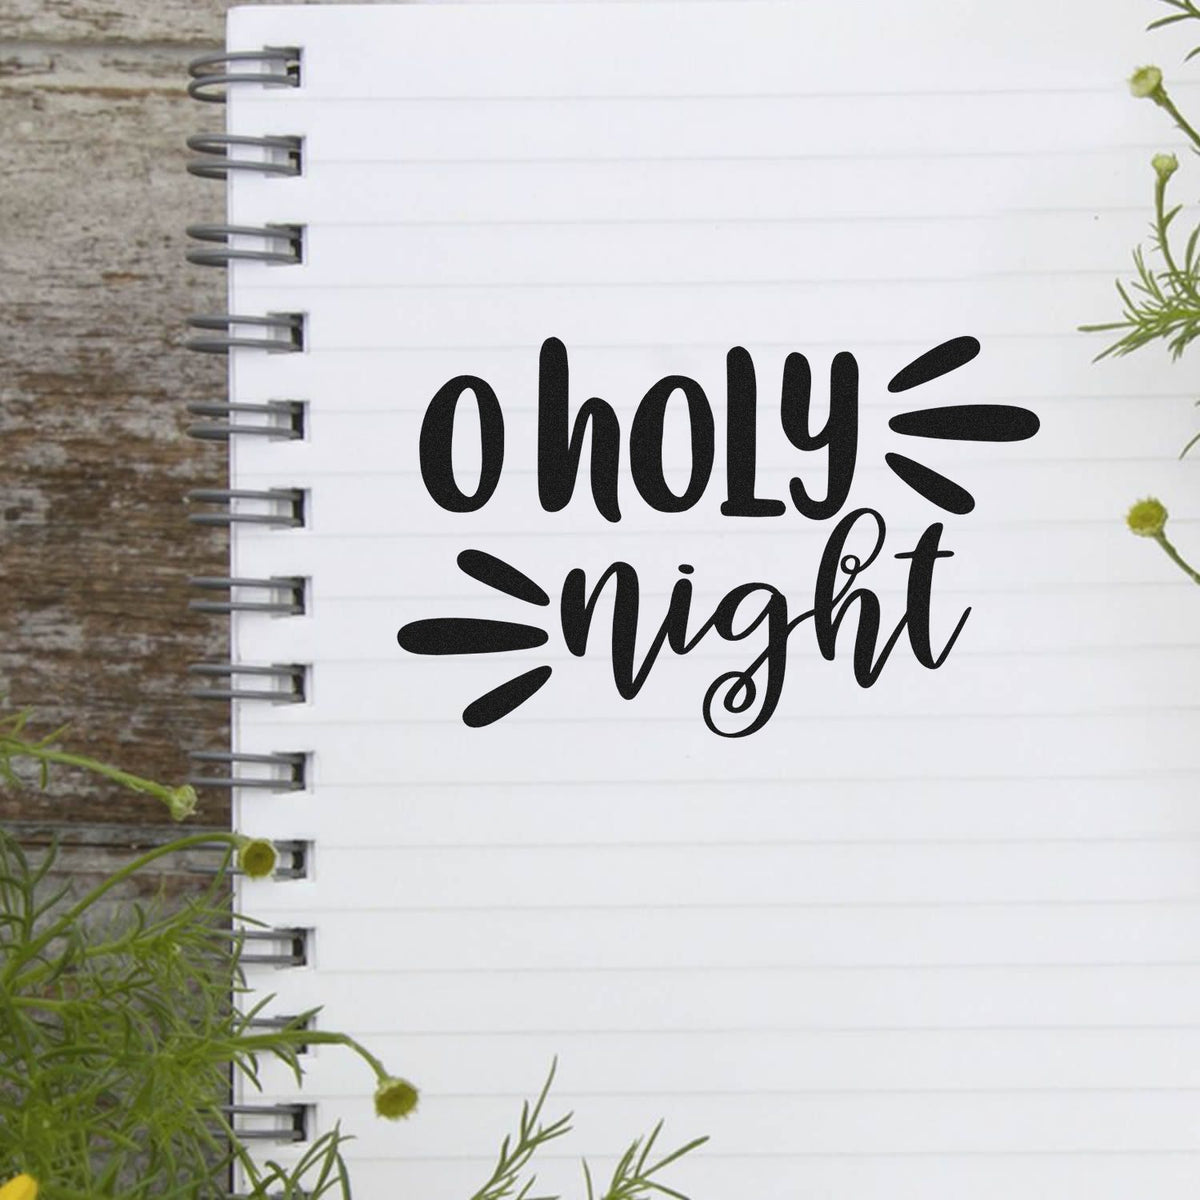 O hOLY
night